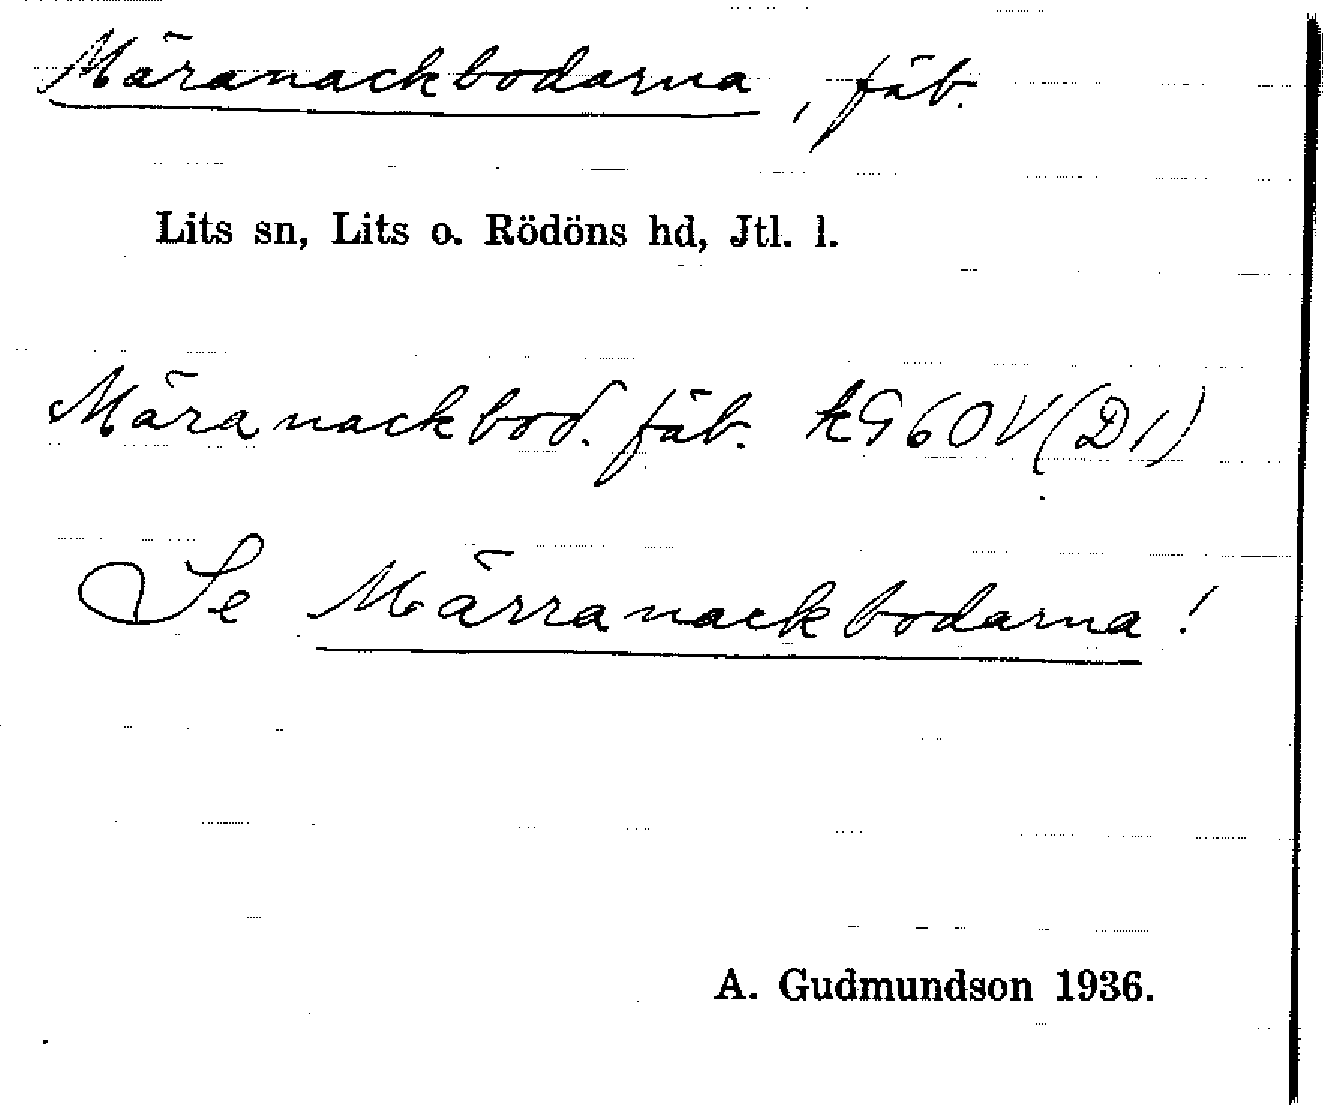 Märanackbodarna, fäb.
Lits sn, Lits o. Rödöns hd, Jtl. l.
Märanackbod. fäb. k G 60 V (D 1)
Se Märranackbodarna!
A. Gudmundson 1936.